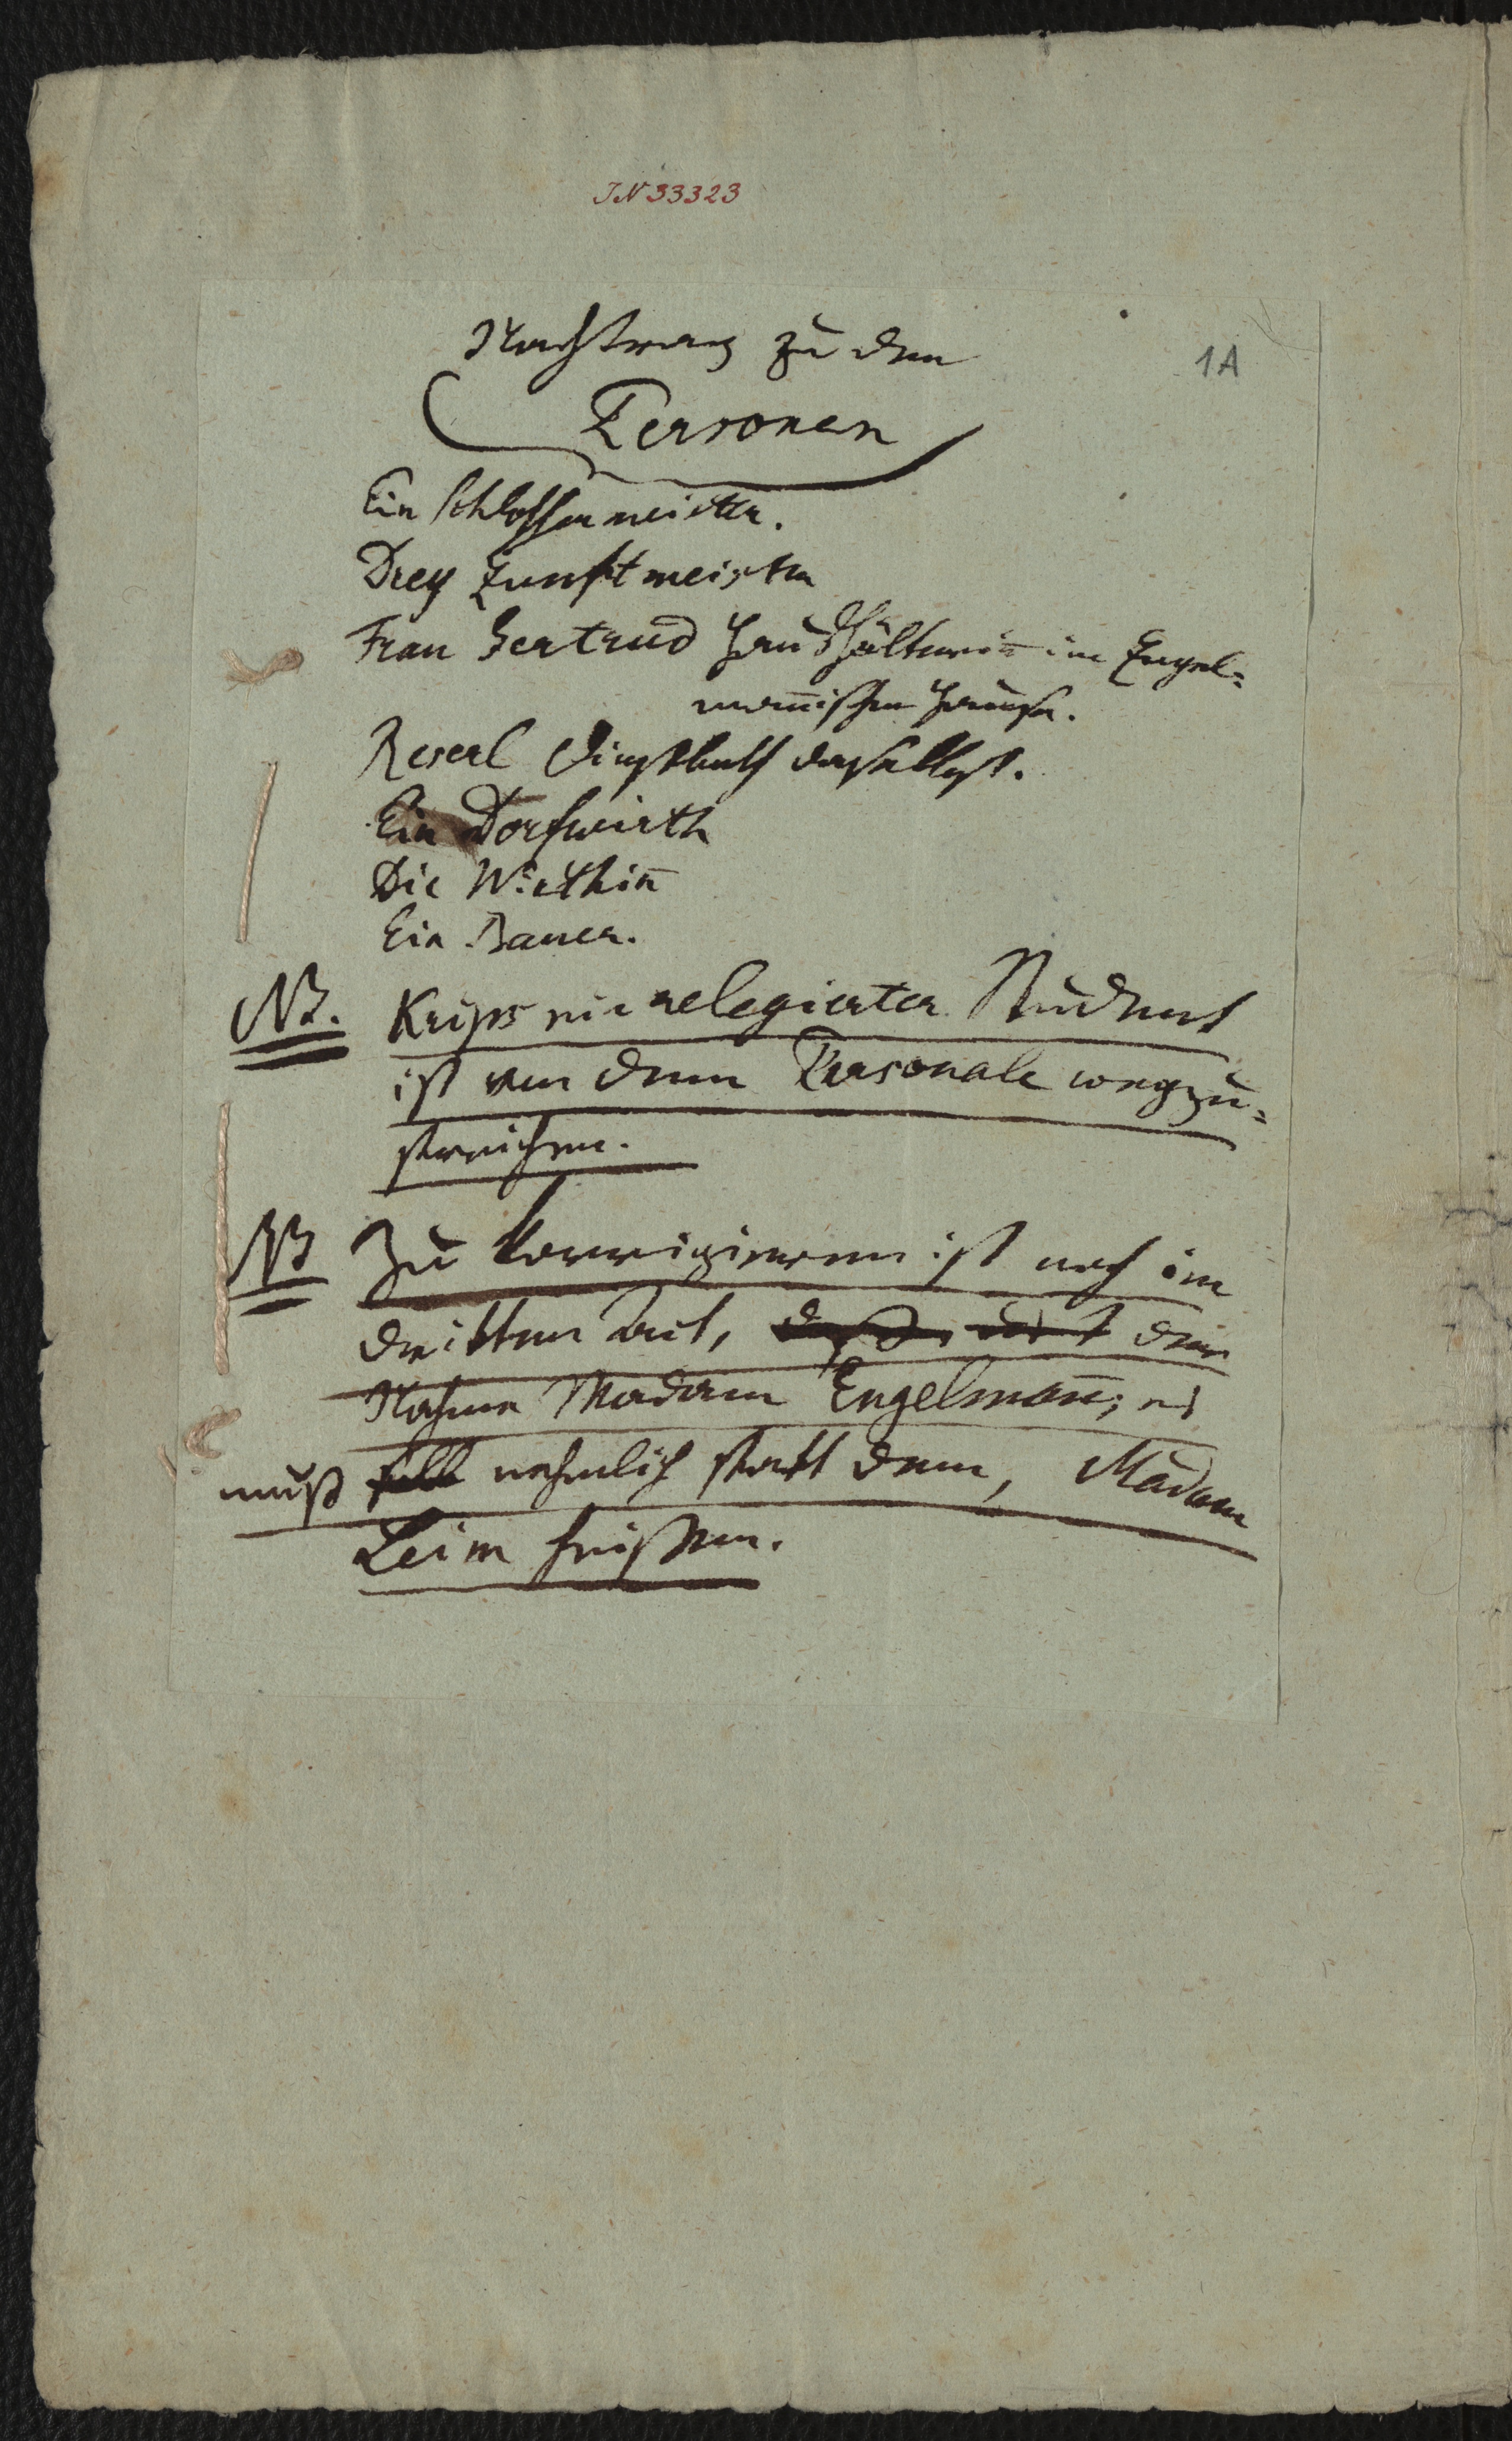 JN 33323
1A
Nachtrag zu den
Personen
Ein Schlossermeister.
Drey Zunftmeister
Frau Gertrud Haushälterin̄ im Engel=
man̄ischen Hause.
Reserl Dienstboth daselbst.
Ein Dorfwirth
Die Wirthin̄
Ein Bauer.
NB. Krips ein relegierter Student
ist von dem Personale wegzu=
streichen.
NB Zu korrigieren ist noch im
dritten Act, der
Nahme Madam Engelman̄; es
muß soll nehmlich statt dem, Madam
Leim heißen.